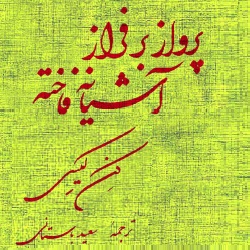 پرواز بر فراز
آشیانه فاخته
کن کیسی
ترجمه سعید باستانی